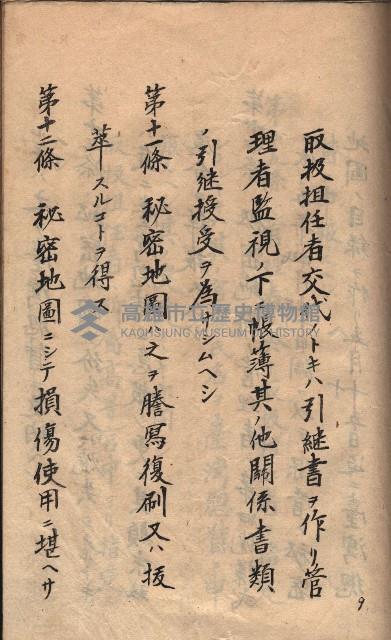 取扱担任者交代ノトキハ引継書ヲ作リ管
理者監視ノ下ニ帳簿其ノ他關係書類
ノ引継授受ヲ為サシムヘシ
第十一條 秘密地圖ハ之ヲ謄寫復刷又ハ抜
萃スルコトヲ得ス
第十二條 秘密地圖ニシテ損傷使用ニ堪ヘサ
9
高雄市立歷史博物館
KAOHSIUNG MUSEUM OF HISTORY